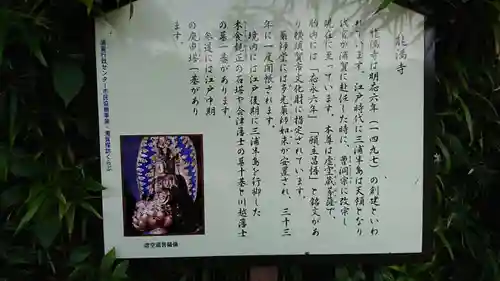 能満寺
能満寺は明応六年（一四九七）の創建といわ
れています。江戸時代に三浦半島は天領となり
代官が浦賀に赴任した時に、曹洞宗に改宗し
現在に至っています。本尊は虚空蔵菩薩で、
胎内には「応永六年」「願主昌悟」と銘文があ
り横須賀市文化財に指定されています。
薬師堂には多光薬師如来が安置され、三十三
年に一度開帳されます。
境内には江戸後期に三浦半島を行脚した
木食観正の石塔や会津藩士の墓十基と川越藩士
の墓一基があります。
参道には江戸中期
の庚申塔一基があり
ます。
虚空蔵菩薩
浦賀行政センター市民協働事業・浦賀探訪くらぶ